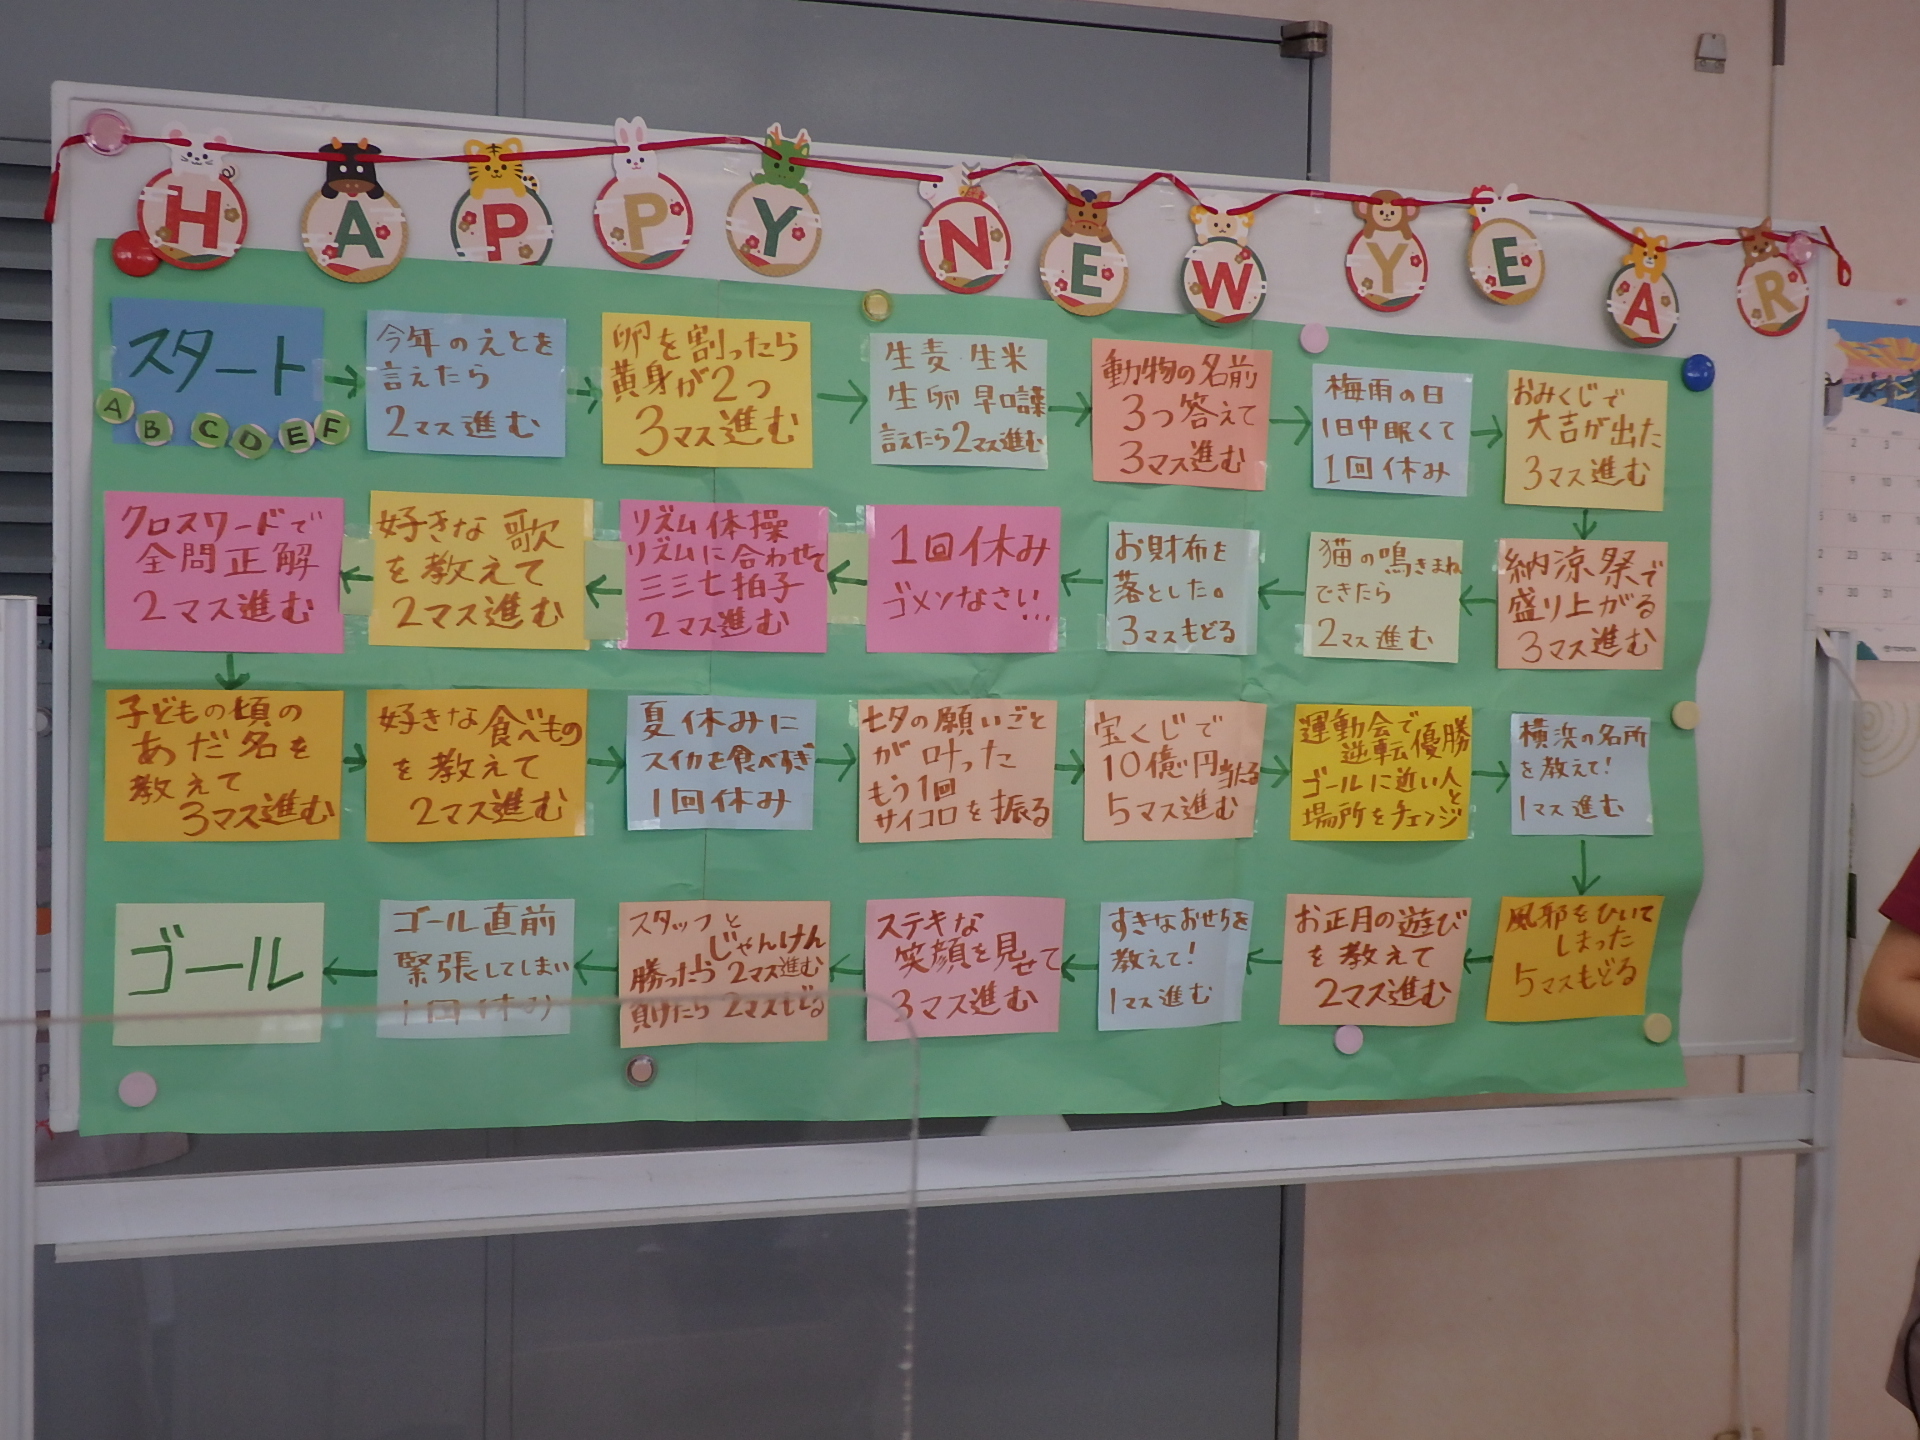 HAPPY NEW YEAR
スタート
A B C D E F
今年のえとを
言えたら
2マス進む
卵を割ったら
黄身が2つ
3マス進む
生麦 生米
生卵 早口言葉
言えたら2マス進む
動物の名前
3つ答えて
3マス進む
梅雨の日
1日中眠くて
1回休み
おみくじで
大吉が出た
3マス進む
納涼祭で
盛り上がる
3マス進む
猫の鳴きまね
できたら
2マス進む
お財布を
落とした。
3マスもどる
1回休み
ゴメンなさい…
リズム体操
リズムに合わせて
三三七拍子
2マス進む
好きな歌
を教えて
2マス進む
クロスワードで
全問正解
2マス進む
子どもの頃の
あだ名を
教えて
3マス進む
好きな食べもの
を教えて
2マス進む
夏休みに
スイカを食べすぎ
1回休み
七夕の願いごと
が叶った
もう1回
サイコロを振る
宝くじで
10億円当たる
5マス進む
運動会で
逆転優勝
ゴールに近い人と
場所をチェンジ
横浜の名所
を教えて!
1マス進む
風邪をひいて
しまった
5マスもどる
お正月の遊び
を教えて
2マス進む
すきなおせちを
教えて!
1マス進む
ステキな
笑顔を見せて
3マス進む
スタッフと
じゃんけん
勝ったら2マス進む
負けたら2マスもどる
ゴール直前
緊張してしまい
1回休み
ゴール
TOYOTA